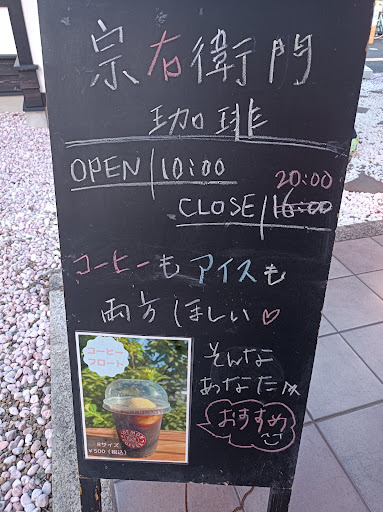 宗右衛門
珈琲
OPEN/10:00
20:00
CLOSE/16:00
コーヒーもアイスも
両方ほしい♡
コーヒー
フロート
Rサイズ
¥500(税込)
そんな
あなたに
おすすめ